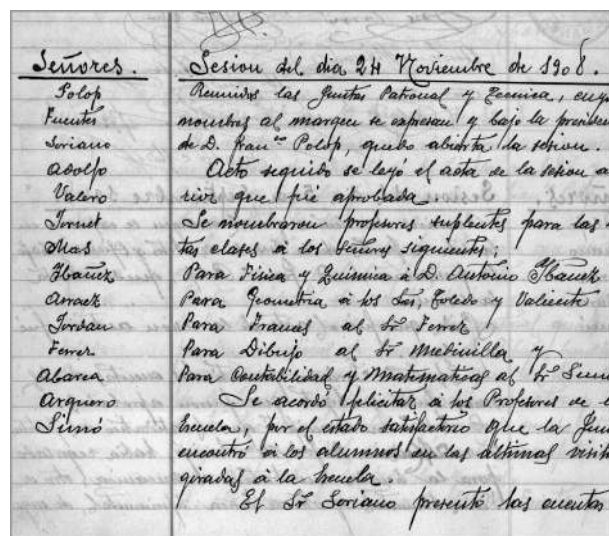 Señores.
Sesion del dia 24 Noviembre de 1908.
Polop
Fuentes
Soriano
Adolfo
Valero
Tornet
Mas
Ibañez
Arraez
Jordan
Ferrer
Abarca
Arquero
Simó
Reunidos las Juntas Patronal y Tecnica, cuyo
nombres al margen se expresan y bajo la presiden
de D. Fran.co Polop, quedo abierta la sesion.
Acto seguido se leyó el acta de la sesion a
rior que fué aprobada.
Se nombraron profesores suplentes para las
tas clases á los Señores siguientes:
Para Fisica y Quimica á D. Antonio Ibañez
Para Geometria á los Sres. Toledo y Valiente
Para Frances al Sr Ferrer
Para Dibujo al Sr Mebinilla y
Para Contabilidad y Matematicas al Sr
Se acordó felicitar á los Profesores de
Escuela, por el estado satisfactorio que la Jun
encontró á los alumnos en las altimas visit
giradas á la Escuela.
El Sr Soriano presentó las cuentas